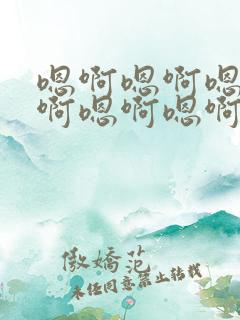 嗯啊嗯啊嗯
啊嗯啊嗯啊
傲娇范
未经同意禁止转载